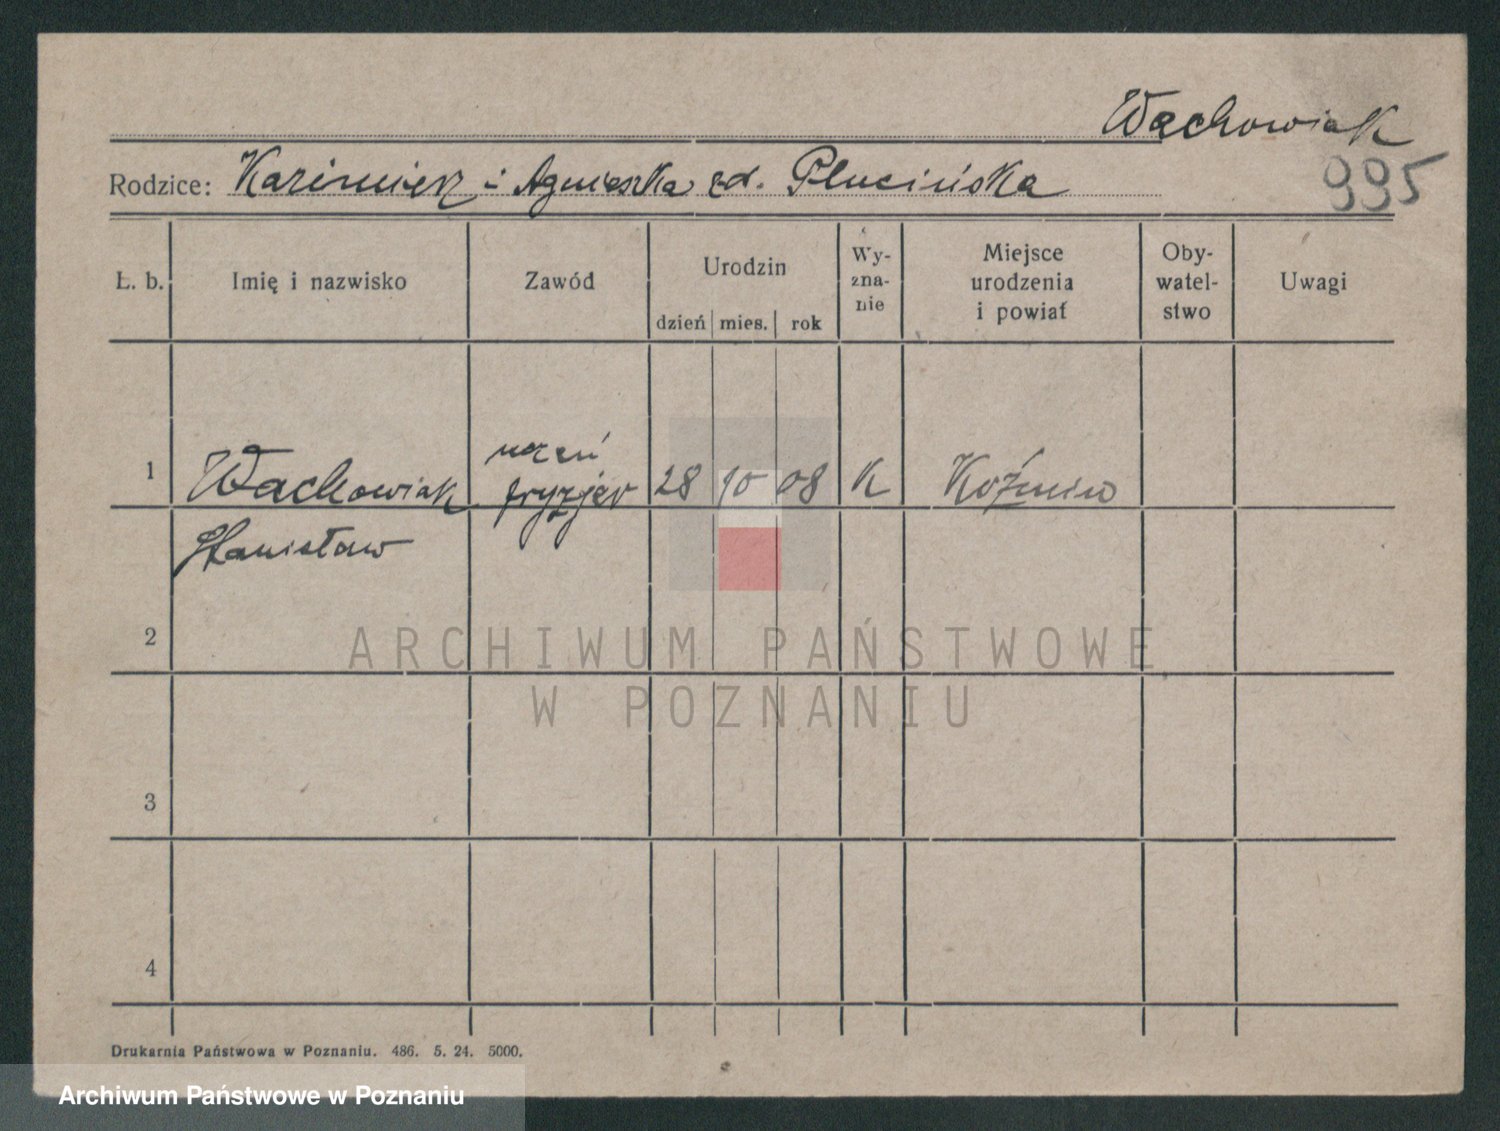 Wachowiak
995
Rodzice: Kazimierz i Agnieszka zd. Plucińska
Ł. b. Imię i nazwisko Zawód Urodzin dzień mies. rok Wy-zna-nie Miejsce urodzenia i powiat Oby-watel-stwo Uwagi
1 Wachowiak uczeń fryzjer 28 10 08 K Koźmin
Stanisław
2
ARCHIWUM PAŃSTWOWE
W POZNANIU
3
4
Drukarnia Państwowa w Poznaniu. 486. 5. 24. 5000.
Archiwum Państwowe w Poznaniu